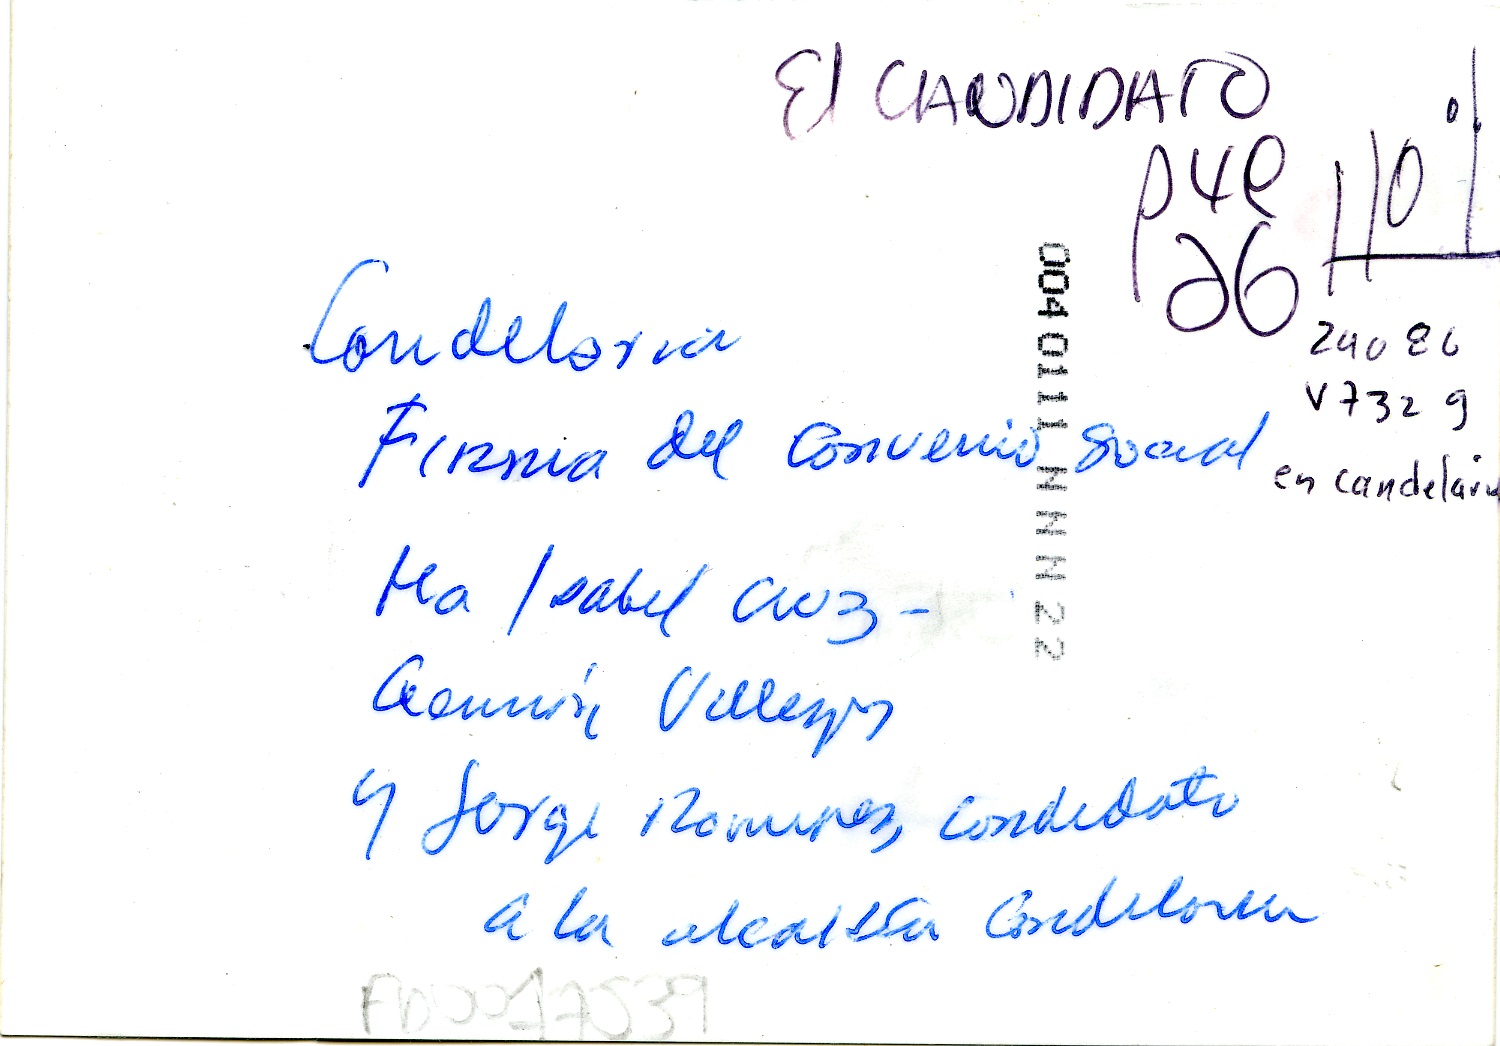 El CANDIDATO
p4e
26
110%
24086
V7329
en candelaria
004 0111 NNNN 22
Candelaria
Firma del Convenio Social
Ma Isabel Cruz -
Villegas
y Jorge Ramirez, candidato
a la alcaldia Candelaria